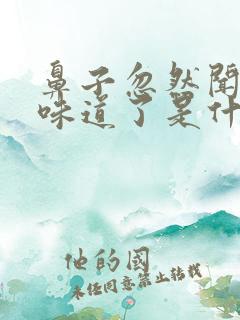 鼻子忽然聞
味道了是什
他的國
未经同意禁止转载